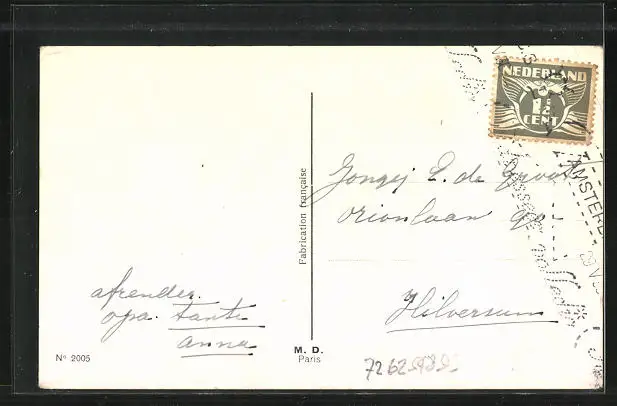 NEDERLAND
1½
CENT
AMSTERD
Fabrication française
Jongej E. de Groot
Orionlaan
Hilversum
afzender.
opa. tante
anna
Nº 2005
M. D.
Paris